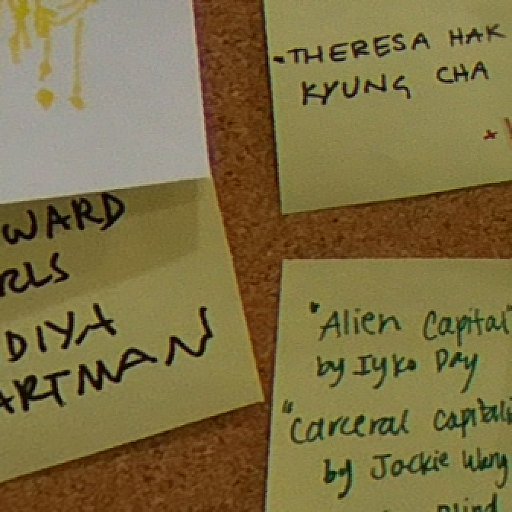 -THERESA HAK
KYUNG CHA
+
WARD
RLS
DIYA
ARTMAN
"Alien Capital"
by Iyko Day
"Carceral Capitali
by Jackie Wang
blind